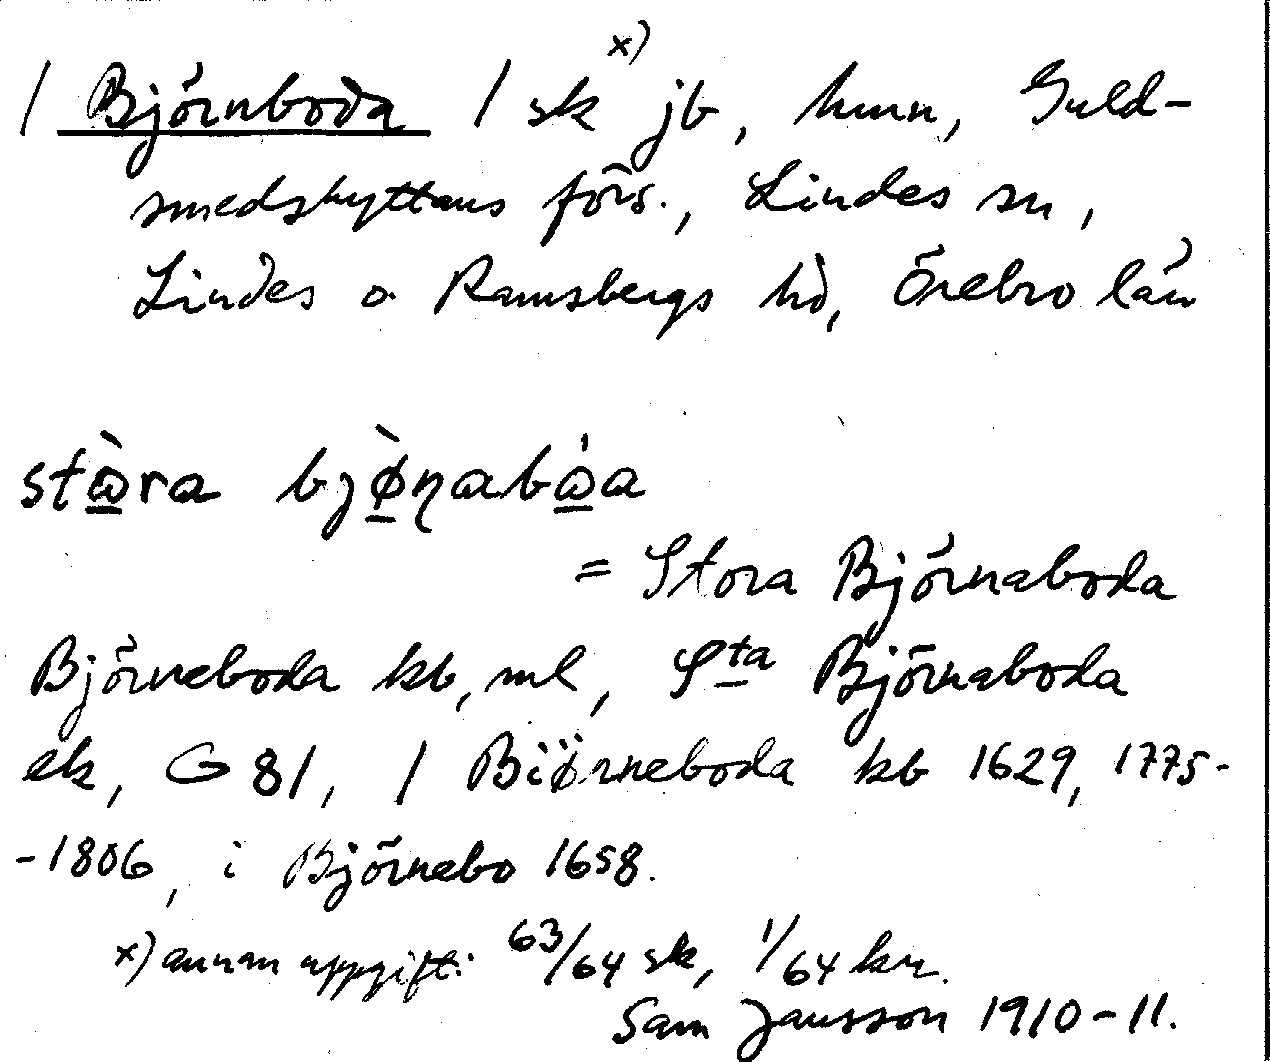 / Björnboda / sk x) jb, hmn, Guld-
smedshyttans förs., Lindes sn,
Lindes o Ramsbergs hd, Örebro län
stὼra bjø̀ṇabώa
= Stora Björnaboda
Björneboda kb, ml, Sta Björnaboda
ek, G 81, / Biörneboda kb 1629, 1775-
-1806, i Björnebo 1658.
x) annan uppgift: 63/64 sk, 1/64 kr.
Sam Jansson 1910-11.